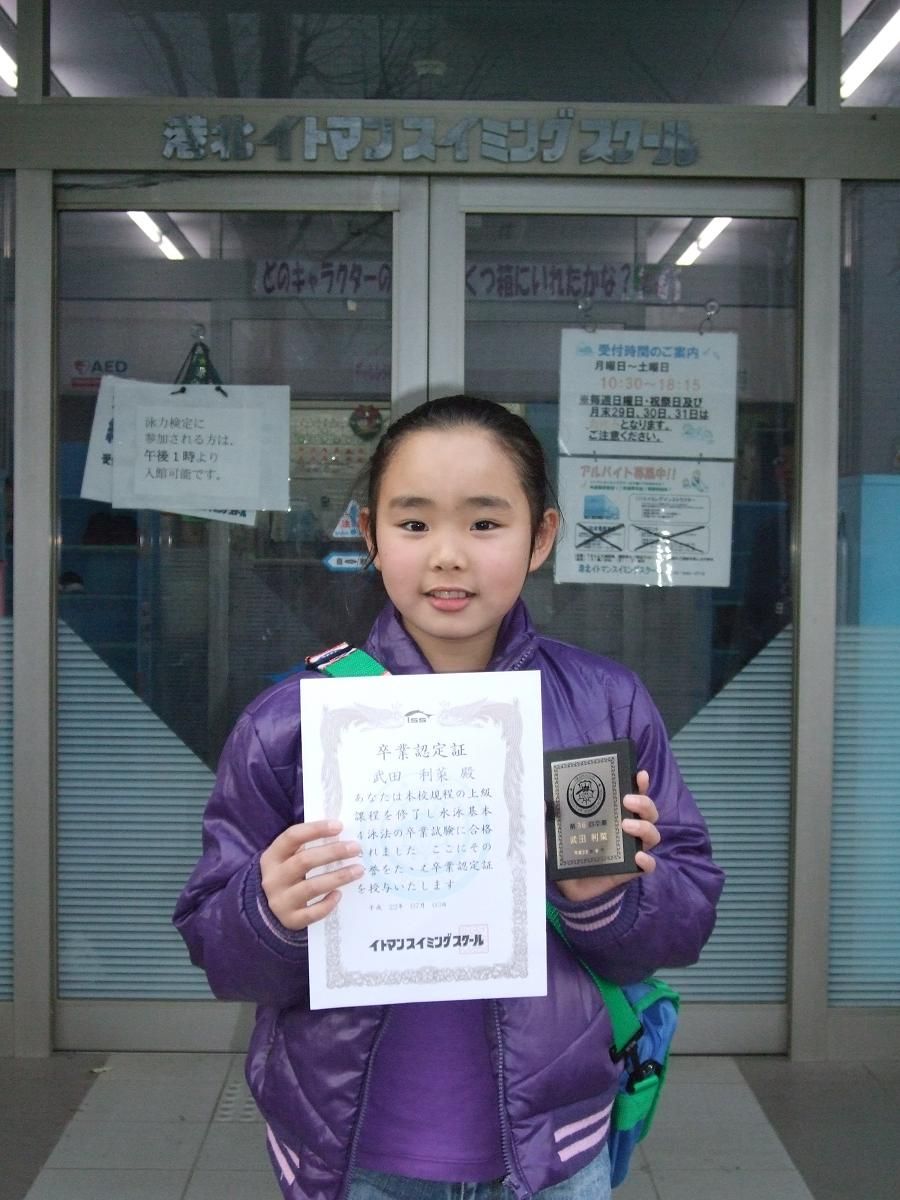 港北イトマンスイミングスクール
どのキャラクターの くつ箱にいれたかな?
AED
泳力検定に
参加される方は、
午後1時より
入館可能です。
受付時間のご案内
月曜日~土曜日
10:30~18:15
※毎週日曜日・祝祭日及び
月末29日、30日、31日は
となります。
ご注意ください。
アルバイト募集中!!
港北イトマンスイミングスクール
ISS
卒業認定証
武田 利菜 殿
あなたは本校規程の上級
課程を修了し水泳基本
4泳法の卒業試験に合格
されました ここにその
誉をたゝえ卒業認定証
を授与いたします
平成 22年 07月
イトマンスイミングスクール
武田 利菜